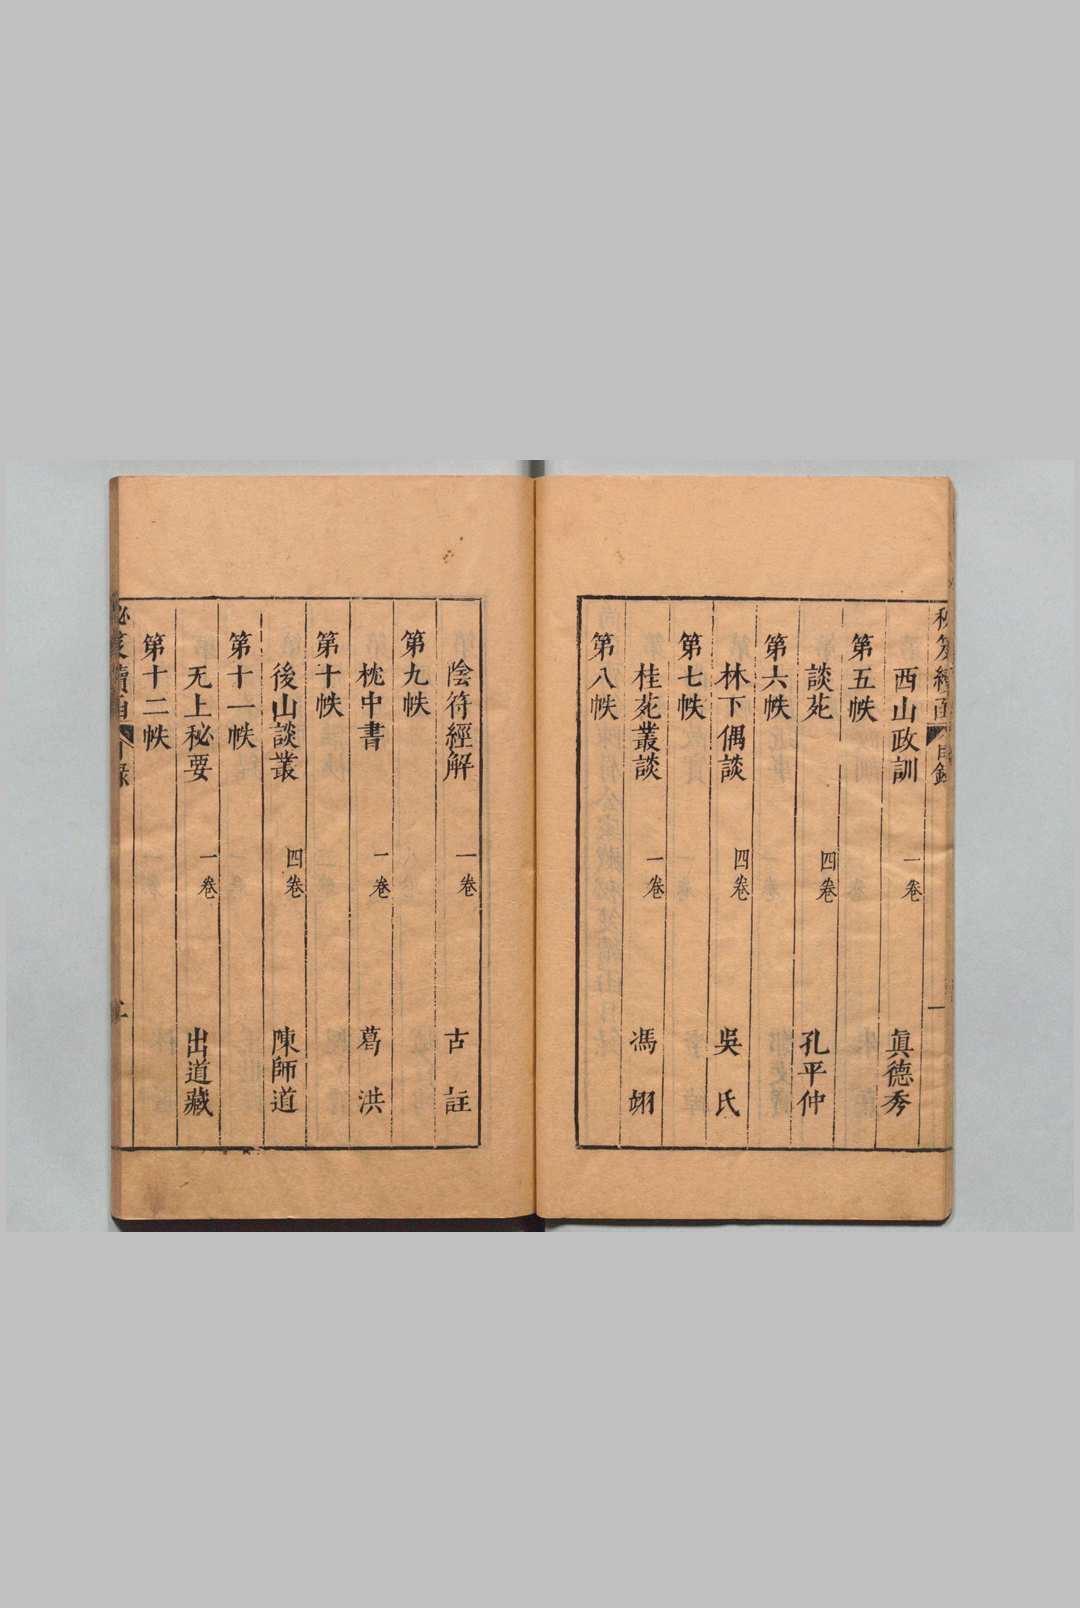 西山政訓 一卷 眞德秀
第五帙
談苑 四卷 孔平仲
第六帙
林下偶談 四卷 吳氏
第七帙
桂苑叢談 一卷 馮翊
第八帙
陰符經解 一卷 古註
第九帙
枕中書 一卷 葛洪
第十帙
後山談叢 四卷 陳師道
第十一帙
无上秘要 一卷 出道藏
第十二帙